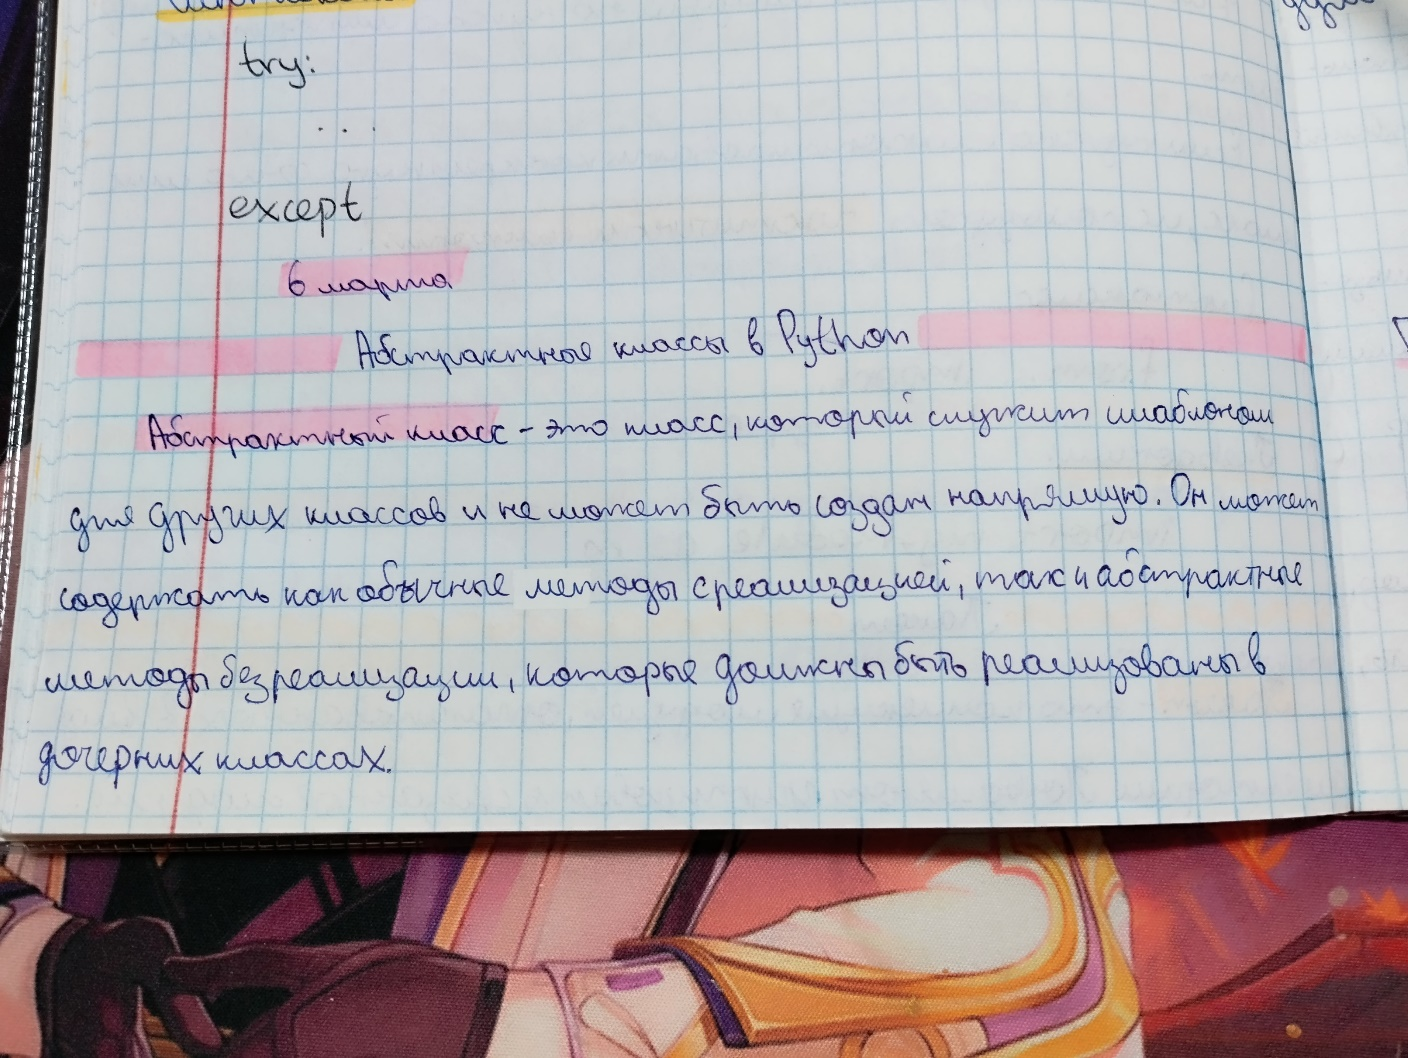 try:
...
except
6 марта
Абстрактные классы в Python
Абстрактный класс - это класс, который служит шаблоном
для других классов и не может быть создан напрямую. Он может
содержать как обычные методы с реализацией, так и абстрактные
методы без реализации, которые должны быть реализованы в
дочерних классах.